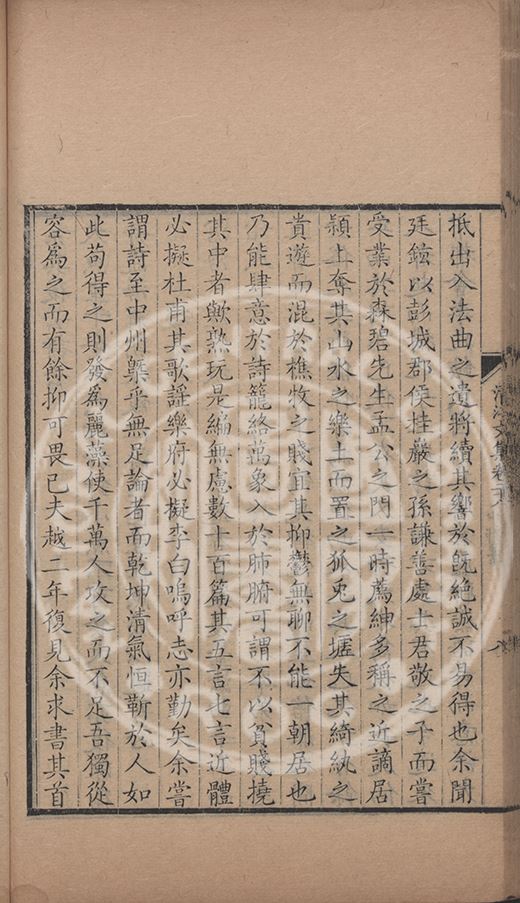 抵出入法曲之遺將續其響於既絶誠不易得也余聞
廷鉉以彭城郡侯桂巖之孫謙善處士君敬之子而嘗
受業於森碧先生孟公之門一時薦紳多稱之近謫居
潁上奪其山水之樂上而置之狐兎之墟失其綺紈之
貴遊而混於樵牧之賤宜其抑鬱無聊不能一朝居也
乃能肆意於詩籠絡萬象入於肺腑可謂不以貧賤撓
其中者歟熟玩是編無慮數十百篇其五言七言近體
必擬杜甫其歌謡樂府必擬李白嗚呼志亦勤矣余嘗
謂詩至中州槩乎無足論者而乾坤清氣恒靳於人如
此苟得之則發爲麗藻使千萬人攻之而不足吾獨從
容爲之而有餘抑可畏已夫越二年復見余求書其首